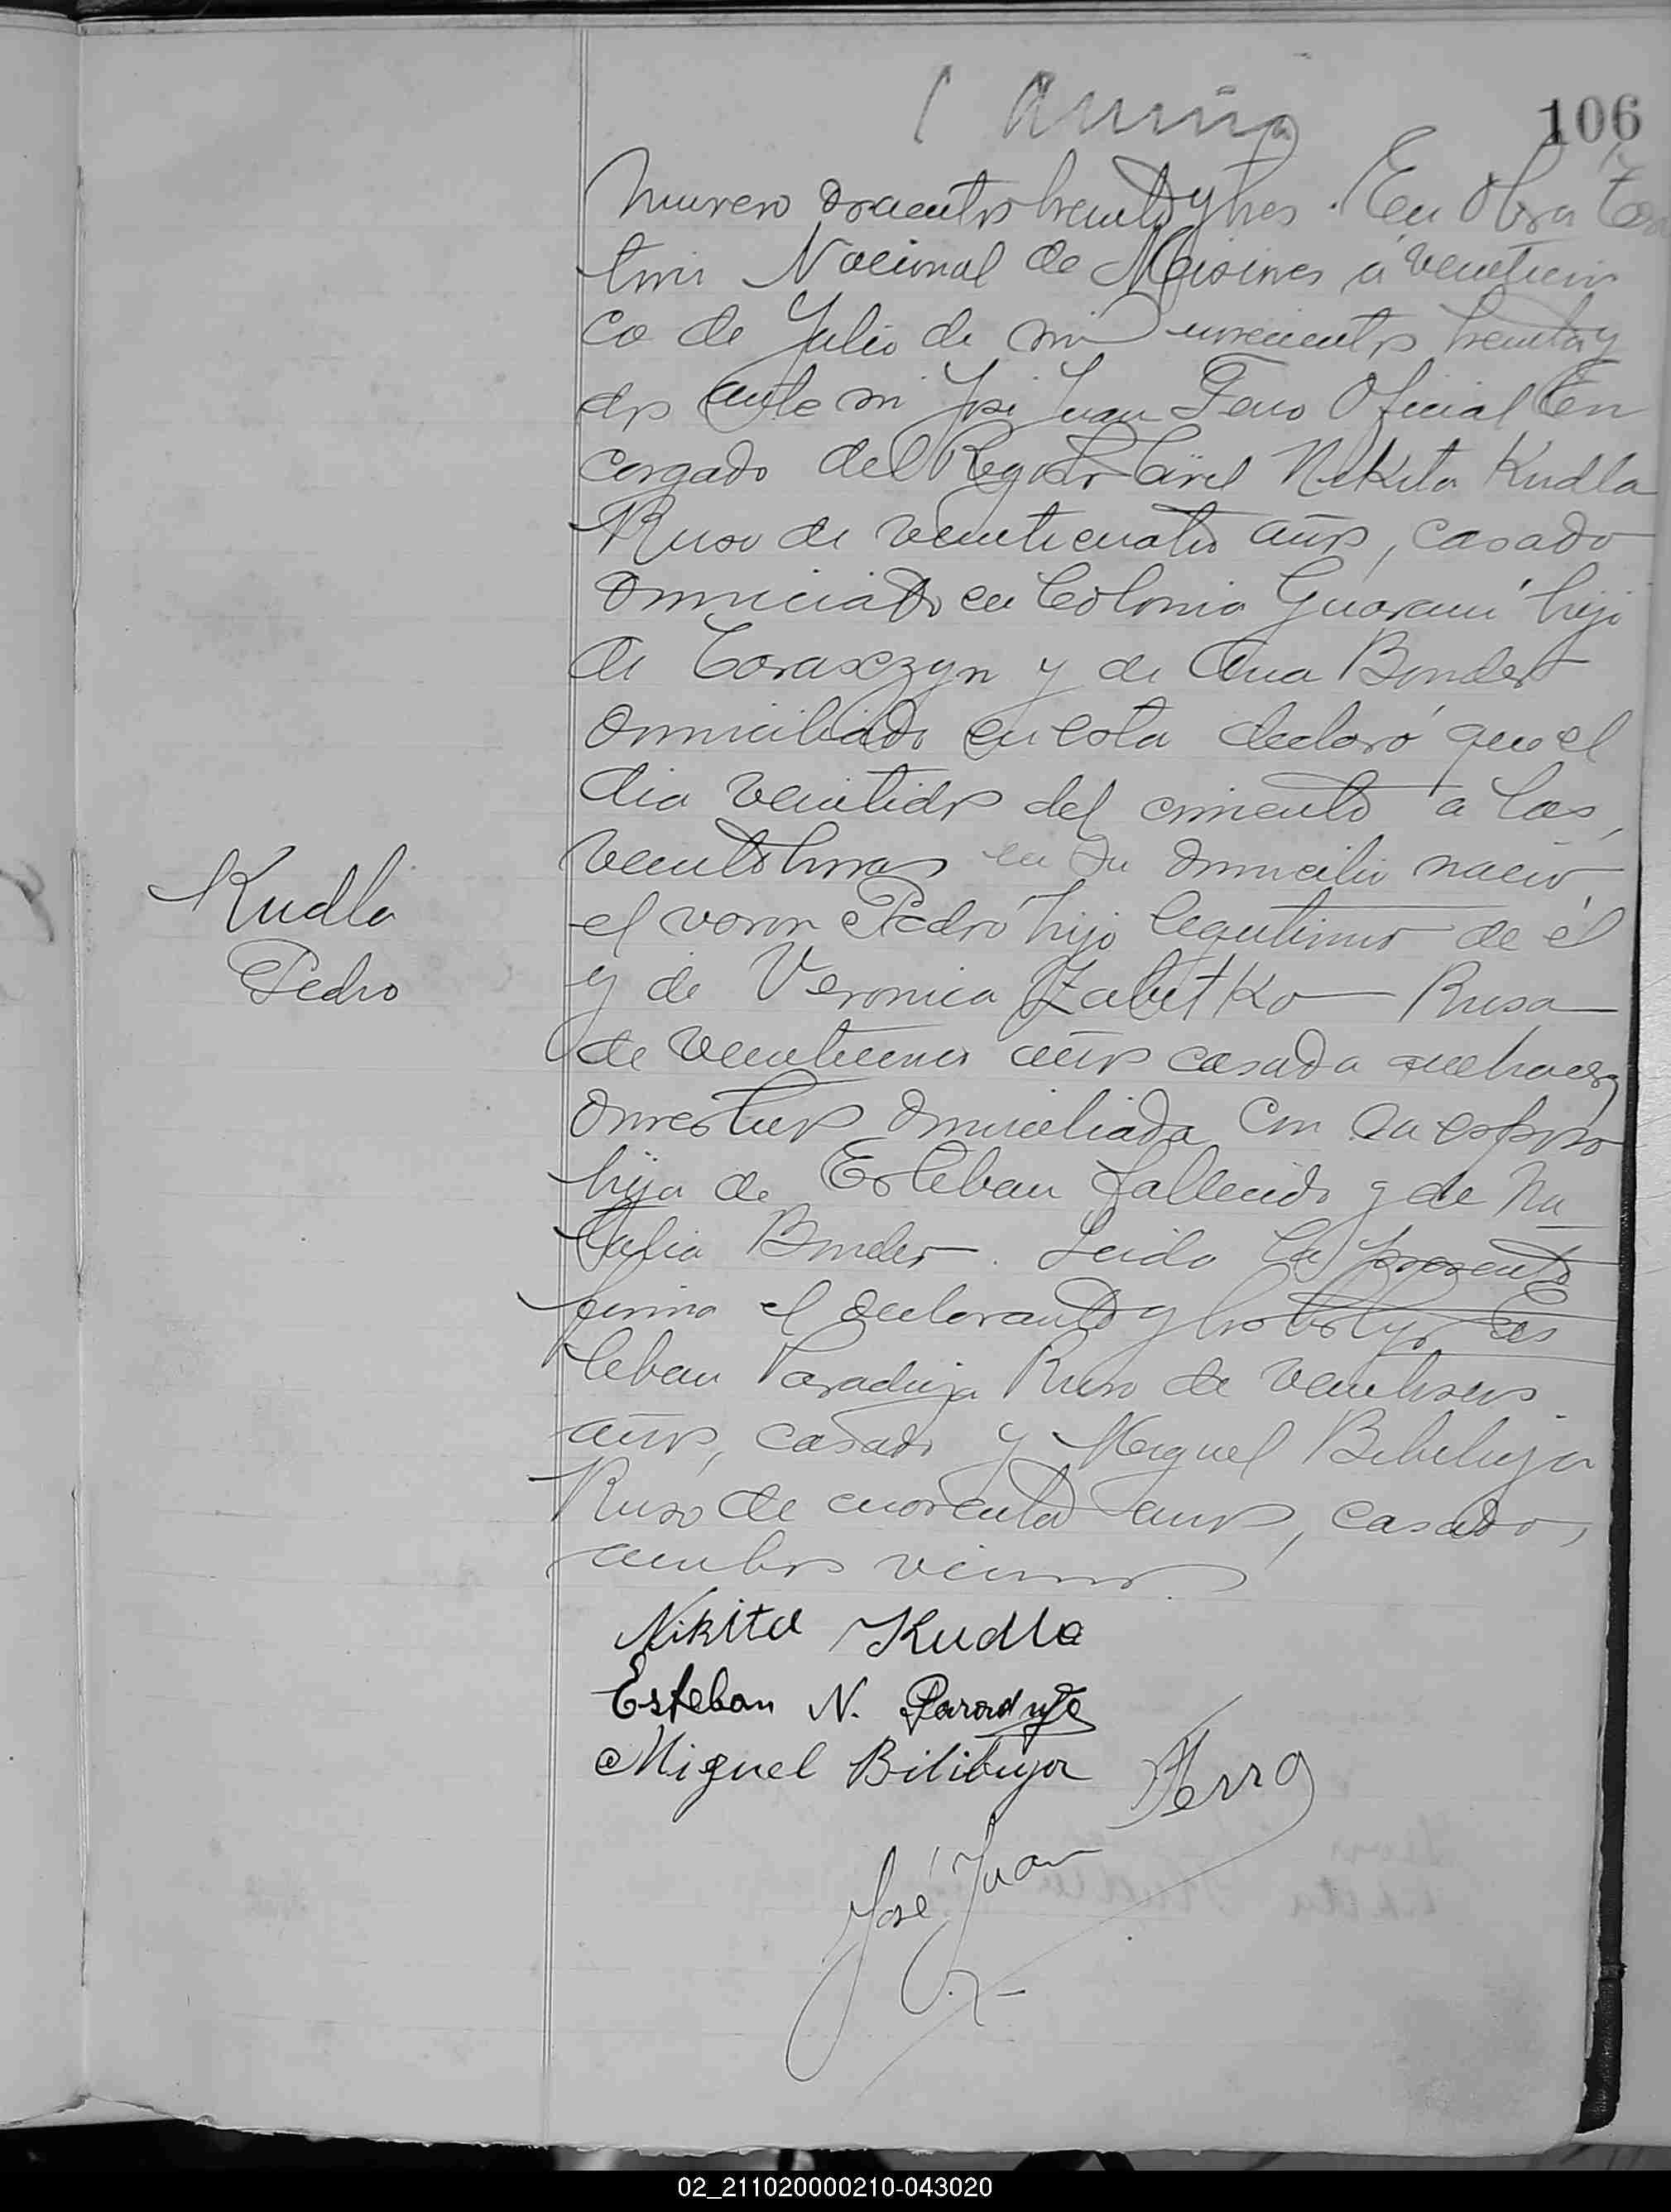 106
Numero doscientos treinta y tres. En Oberá Terri
torio Nacional de Misiones á veinticin
co de Julio de mil novecientos treinta y
dos ante mi José Juan Ferro Oficial En
cargado del Registro Civil Nikita Kudla
Ruso de veinticuatro años, casado
domiciliado en Colonia Guarani hijo
de y de Ana Bonder
domiciliado en esta declaró que el
dia veintidos del corriente a las
veinte horas en su domicilio nació
Kudla
Pedro
el varon Pedro hijo legitimo de él
y de Veronica Zabitko Rusa
de veintiun años casada quehaceres
domesticos domiciliada con su esposo
hija de Esteban fallecido y de Na
talia Bonder. Leida la presente
firma el declarante y los testigos Es
teban Paraduja Ruso de veintiseis
años, casado y Miguel Bilibuja
Ruso de cuarenta años, casado,
ambos vecinos
Nikita Kudla
Esteban N. Paraduja
Miguel Bilibuja
José Juan Ferro
02_211020000210-043020